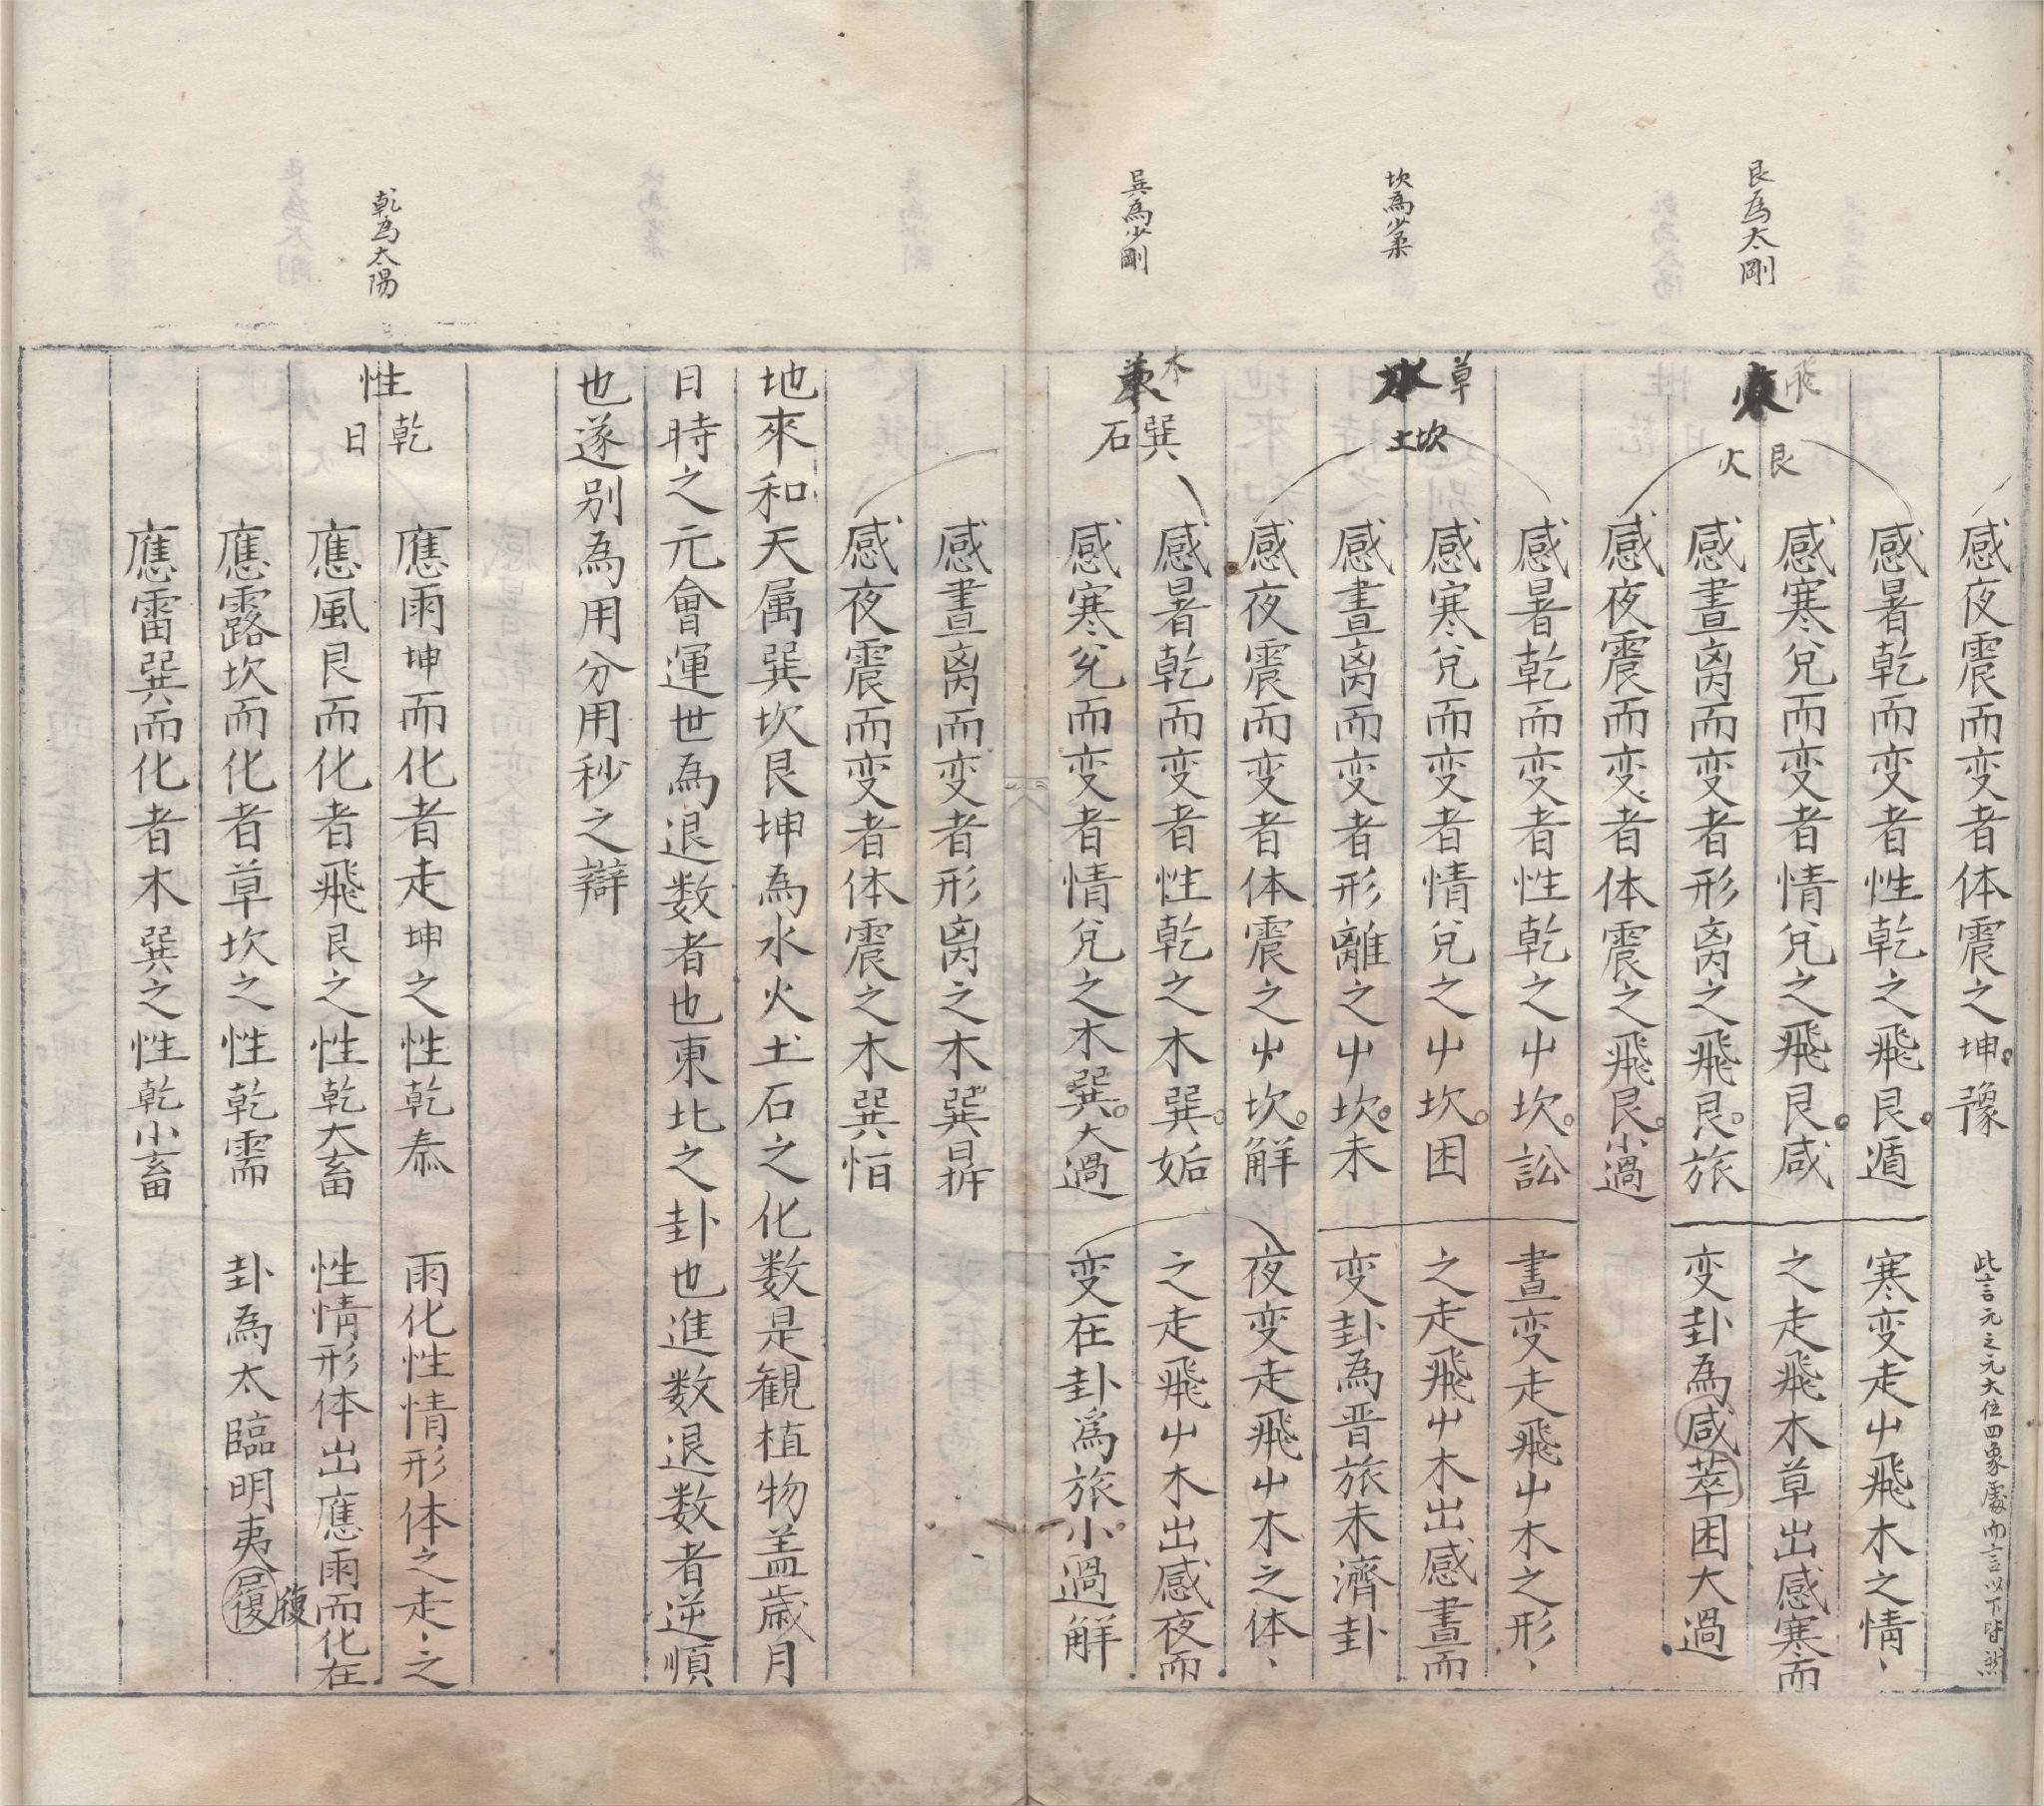 艮為太剛
坎為少柔
巽為少剛
乾為太陽
感夜震而变者体震之坤豫
此言元之元大位四象處而言以下皆然
感暑乾而变者性乾之飛艮遁
寒变走屮飛木之情、
飛
艮
火
感寒兌而变者情兌之飛艮咸
之走飛木草出感寒而
感晝离而变者形离之飛艮旅
变卦為咸萃困大過
感夜震而变者体震之飛艮小過
感暑乾而变者性乾之屮坎訟
晝变走飛屮木之形、
草
水
坎
土
感寒兌而变者情兌之屮坎困
之走飛屮木出感晝而
感晝离而变者形離之屮坎未
变卦為晋旅未濟卦
感夜震而变者体震之屮坎解
夜变走飛屮木之体、
木
巽
石
感暑乾而变者性乾之木巽姤
之走飛屮木出感夜而
感寒兌而变者情兌之木巽大過
变在卦爲旅小過解
感晝离而变者形离之木巽鼎
感夜震而变者体震之木巽恒
地來和天属巽坎艮坤為水火土石之化数是観植物盖歲月
日時之元會運世為退数者也東北之卦也進数退数者逆順
也遂别為用分用秒之辯
性
乾
日
應雨坤而化者走坤之性乾泰
雨化性情形体之走、之
應風艮而化者飛艮之性乾大畜
性情形体出應雨而化在
應露坎而化者草坎之性乾需
卦為太臨明夷復
復
應雷巽而化者木巽之性乾小畜